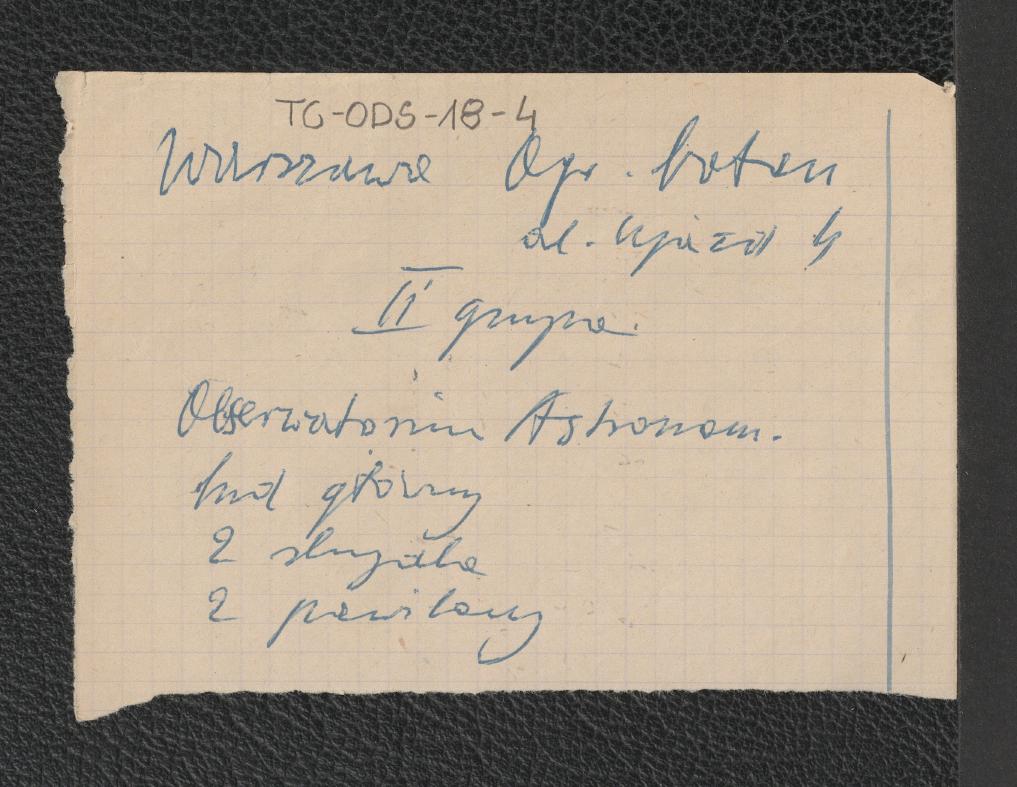 TG-ODS-18-4
Warszawa Ogr. botan
al. Ujazd 4
II grupa.
Obserwatorium Astronom.
bud główny
2
2 pawilony